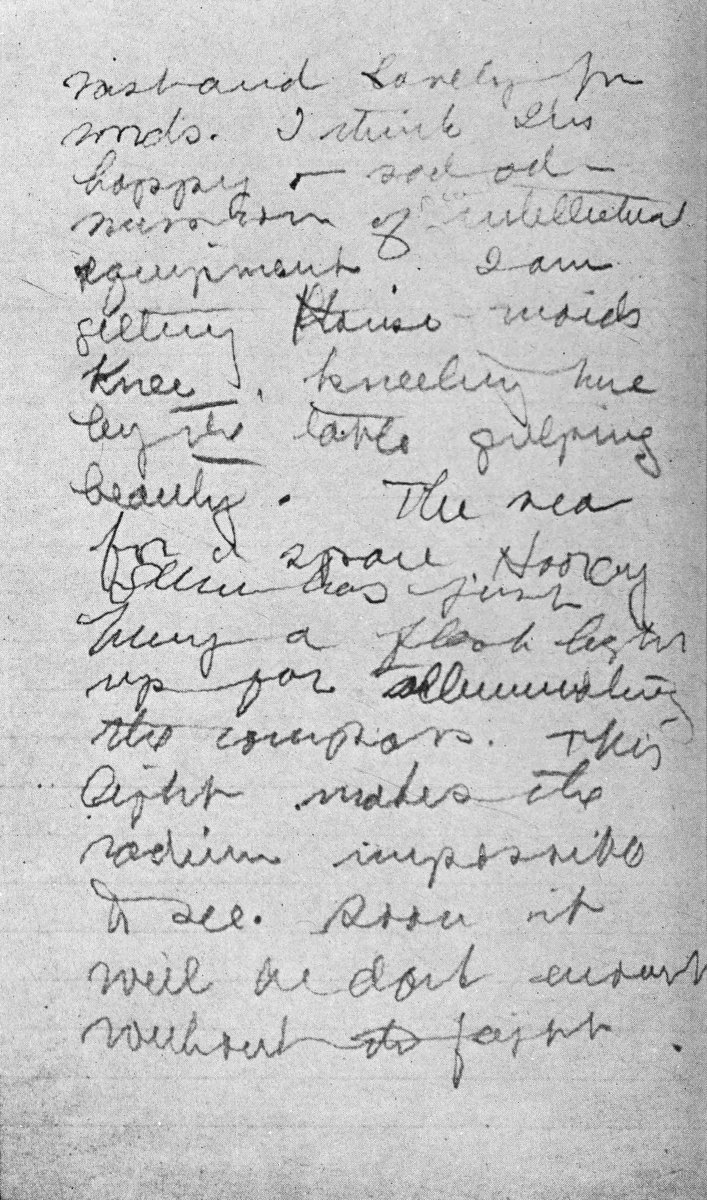 vast and lovely for
words. I think I'm
happy - sad ad-
mission of scant intellectual
equipment I am
getting House-maids
Knee, kneeling here
by the table gulping
beauty. The sea
for a space. Hooray
Slim has just
hung a flash light
up for illuminating
the compass. This
light makes the
radium impossible
to see. Soon it
will be dark enough
without the light.